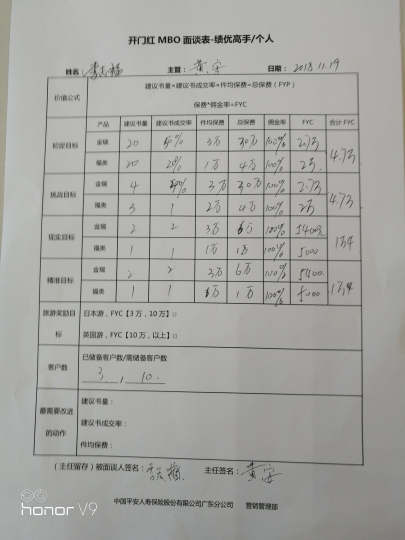 开门红 MBO 面谈表-绩优高手/个人
姓名： 主管：黄安 日期：2018 11.19
价值公式 建议书量×建议书成交率×件均保费=总保费（FYP）
保费*佣金率=FYC
产品 建议书量 建议书成交率 件均保费 总保费 佣金率 FYC 合计 FYC
初定目标 金瑞 20 50% 3万 30万 100% 2.7万 4.7万
福类 20 20% 1万 4万 100% 2万
挑战目标 金瑞 4 3万 30万 100% 2.7万 4.7万
福类 3 1 2万 4万 100% 2万
现实目标 金瑞 2 2 3万 6万 100% 5400
福类 1 1 1万 1万 100% 5000
精准目标 金瑞 2 2 3万 6万 100% 5400
福类 1 1 1万 100% 5000
旅游奖励目标 日本游，FYC【3 万，10 万】□
英国游，FYC【10 万，以上】□
客户数 已储备客户数/需储备客户数
3 , 10.
最需要改进的动作 建议书量：
建议书成交率：
件均保费：
（主任留存）被面谈人签名： 主任签名：黄安
中国平安人寿保险股份有限公司广东分公司 营销管理部
honor V9